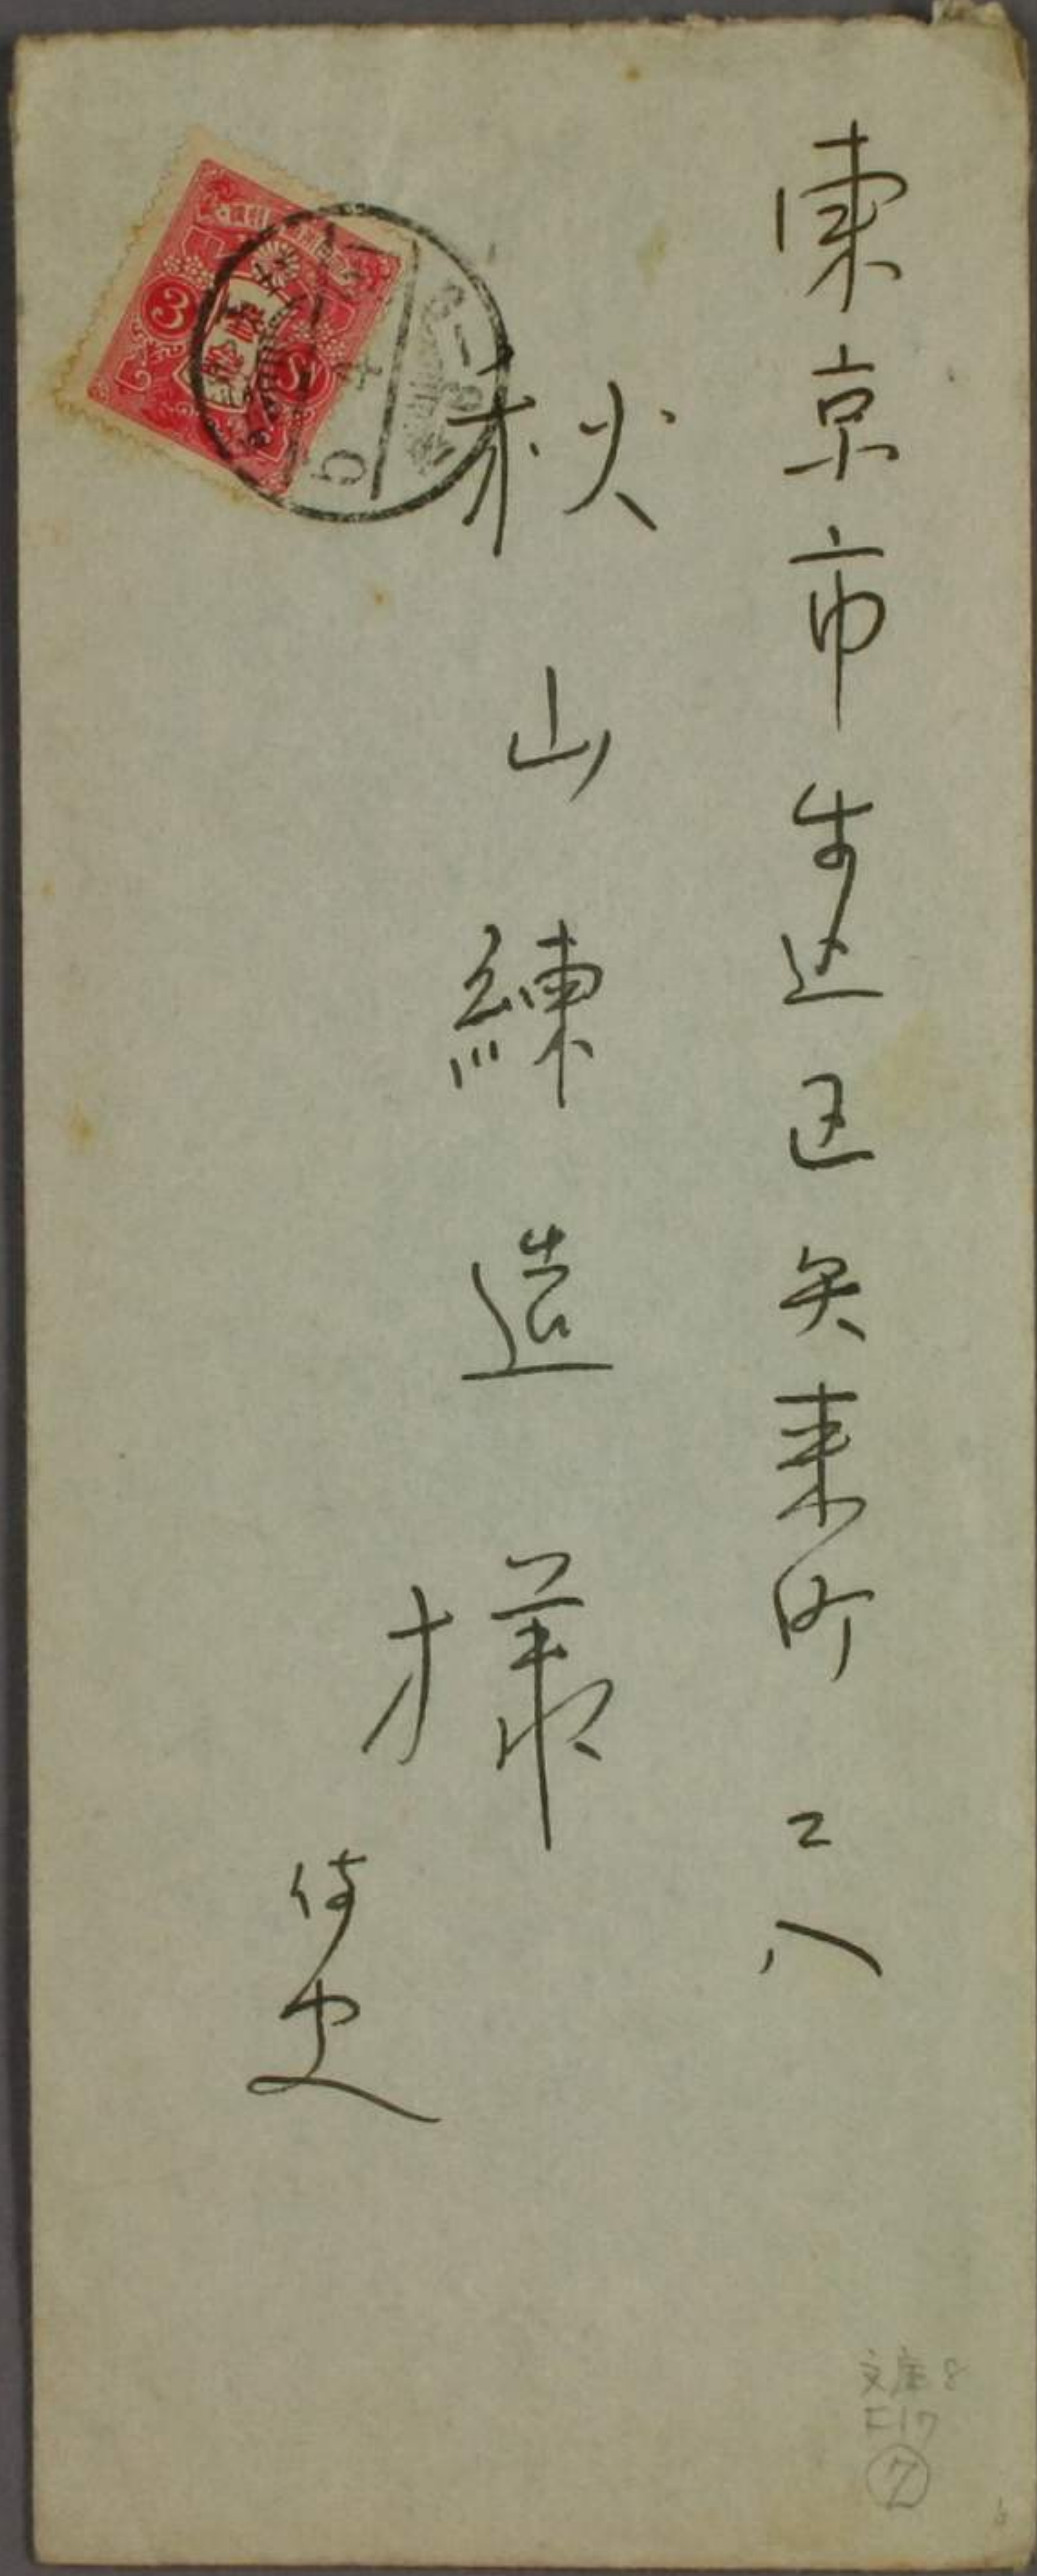 東京市牛込区矢来町二八
秋山練造様
侍史
3
参銭
文庫8
C17
7